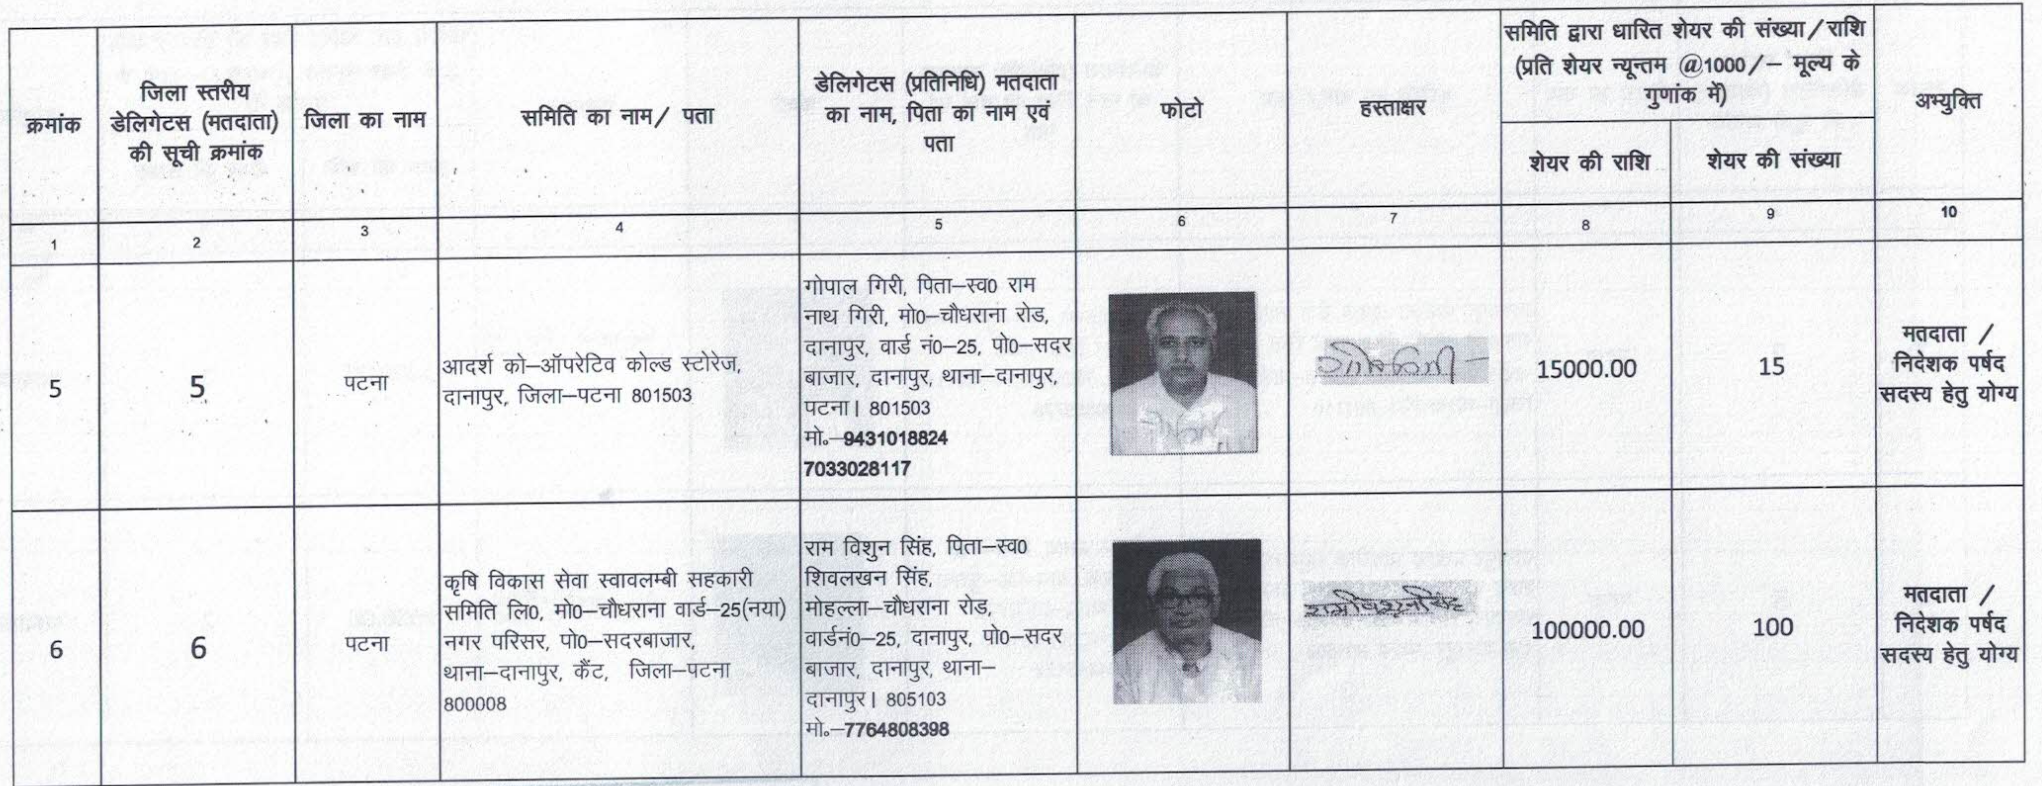 क्रमांक
जिला स्तरीय
डेलिगेटस (मतदाता)
की सूची क्रमांक
जिला का नाम
समिति का नाम/ पता
डेलिगेटस (प्रतिनिधि) मतदाता
का नाम, पिता का नाम एवं
पता
फोटो
हस्ताक्षर
समिति द्वारा धारित शेयर की संख्या/राशि
(प्रति शेयर न्यून्तम @1000/- मूल्य के
गुणांक में)
शेयर की राशि
शेयर की संख्या
अभ्युक्ति
1
2
3
4
5
6
7
8
9
10
5
5
पटना
आदर्श को–ऑपरेटिव कोल्ड स्टोरेज,
दानापुर, जिला–पटना 801503
गोपाल गिरी, पिता–स्व0 राम
नाथ गिरी, मो0–चौधराना रोड,
दानापुर, वार्ड नं0–25, पो0–सदर
बाजार, दानापुर, थाना–दानापुर,
पटना। 801503
मो०–9431018824
7033028117
15000.00
15
मतदाता /
निदेशक पर्षद
सदस्य हेतु योग्य
6
6
पटना
कृषि विकास सेवा स्वावलम्बी सहकारी
समिति लि0, मो0–चौधराना वार्ड–25(नया)
नगर परिसर, पो0–सदरबाजार,
थाना–दानापुर, कैंट, जिला–पटना
800008
राम विशुन सिंह, पिता–स्व0
शिवलखन सिंह,
मोहल्ला–चौधराना रोड,
वार्डनं0–25, दानापुर, पो0–सदर
बाजार, दानापुर, थाना–
दानापुर। 805103
मो०–7764808398
रामविशुनसिंह
100000.00
100
मतदाता /
निदेशक पर्षद
सदस्य हेतु योग्य